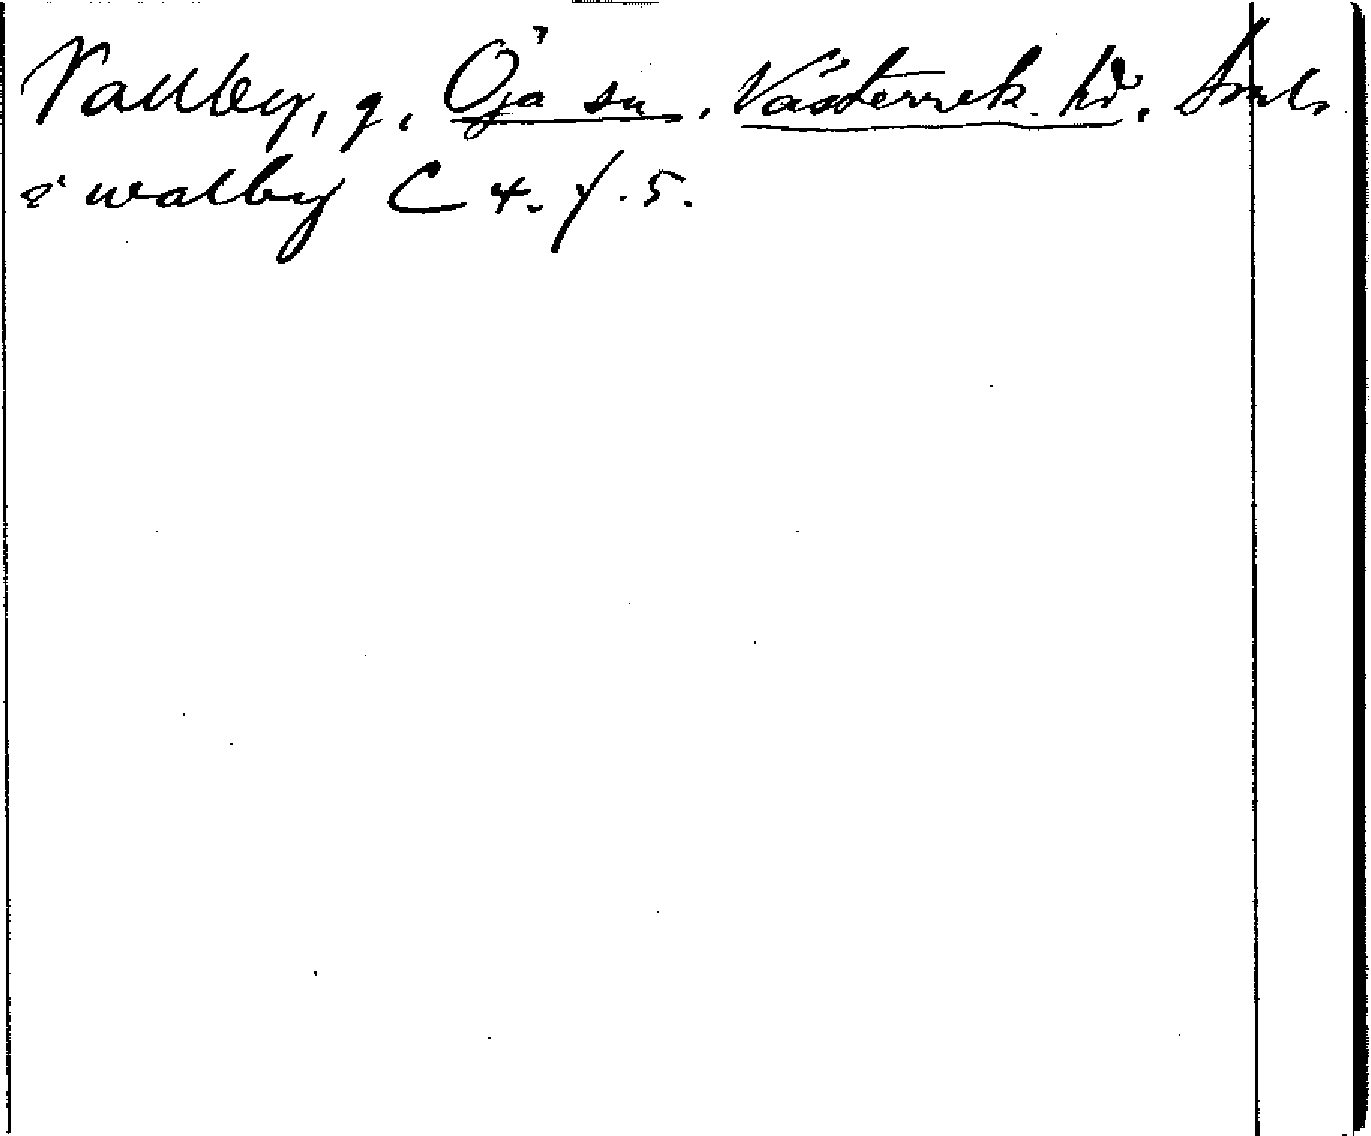 Vallby, g, Öja sn. Västerrek. hd. Sml.
i walby C 4. f. 5.